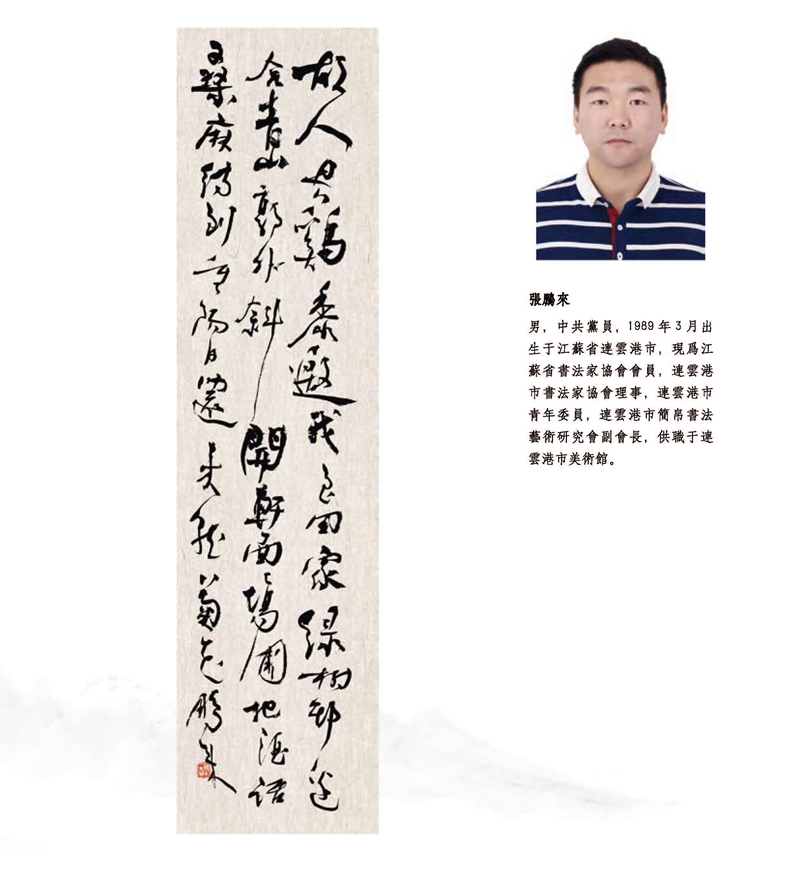 故人具鷄黍邀我至田家緑樹邨邊
合青山郭外斜開軒面場圃把酒話
桑麻待到重陽日還來就菊花鵬來
張鵬來
男，中共黨員，1989年3月出
生于江蘇省連雲港市，現爲江
蘇省書法家協會會員，連雲港
市書法家協會理事，連雲港市
青年委員，連雲港市簡帛書法
藝術研究會副會長，供職于連
雲港市美術館。